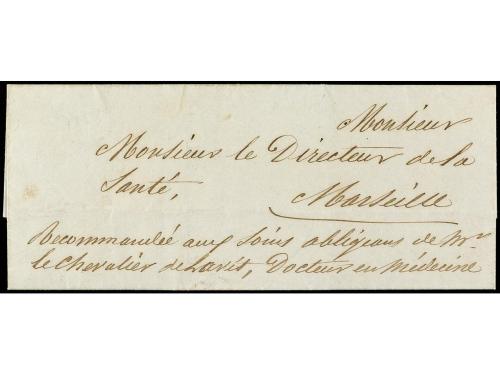 Monsieur
Monsieur le Directeur de la
Santé,
Marseille
Recommandée aux soins obligeans de Mr
le Chevalier de Lavit, Docteur en Médecine